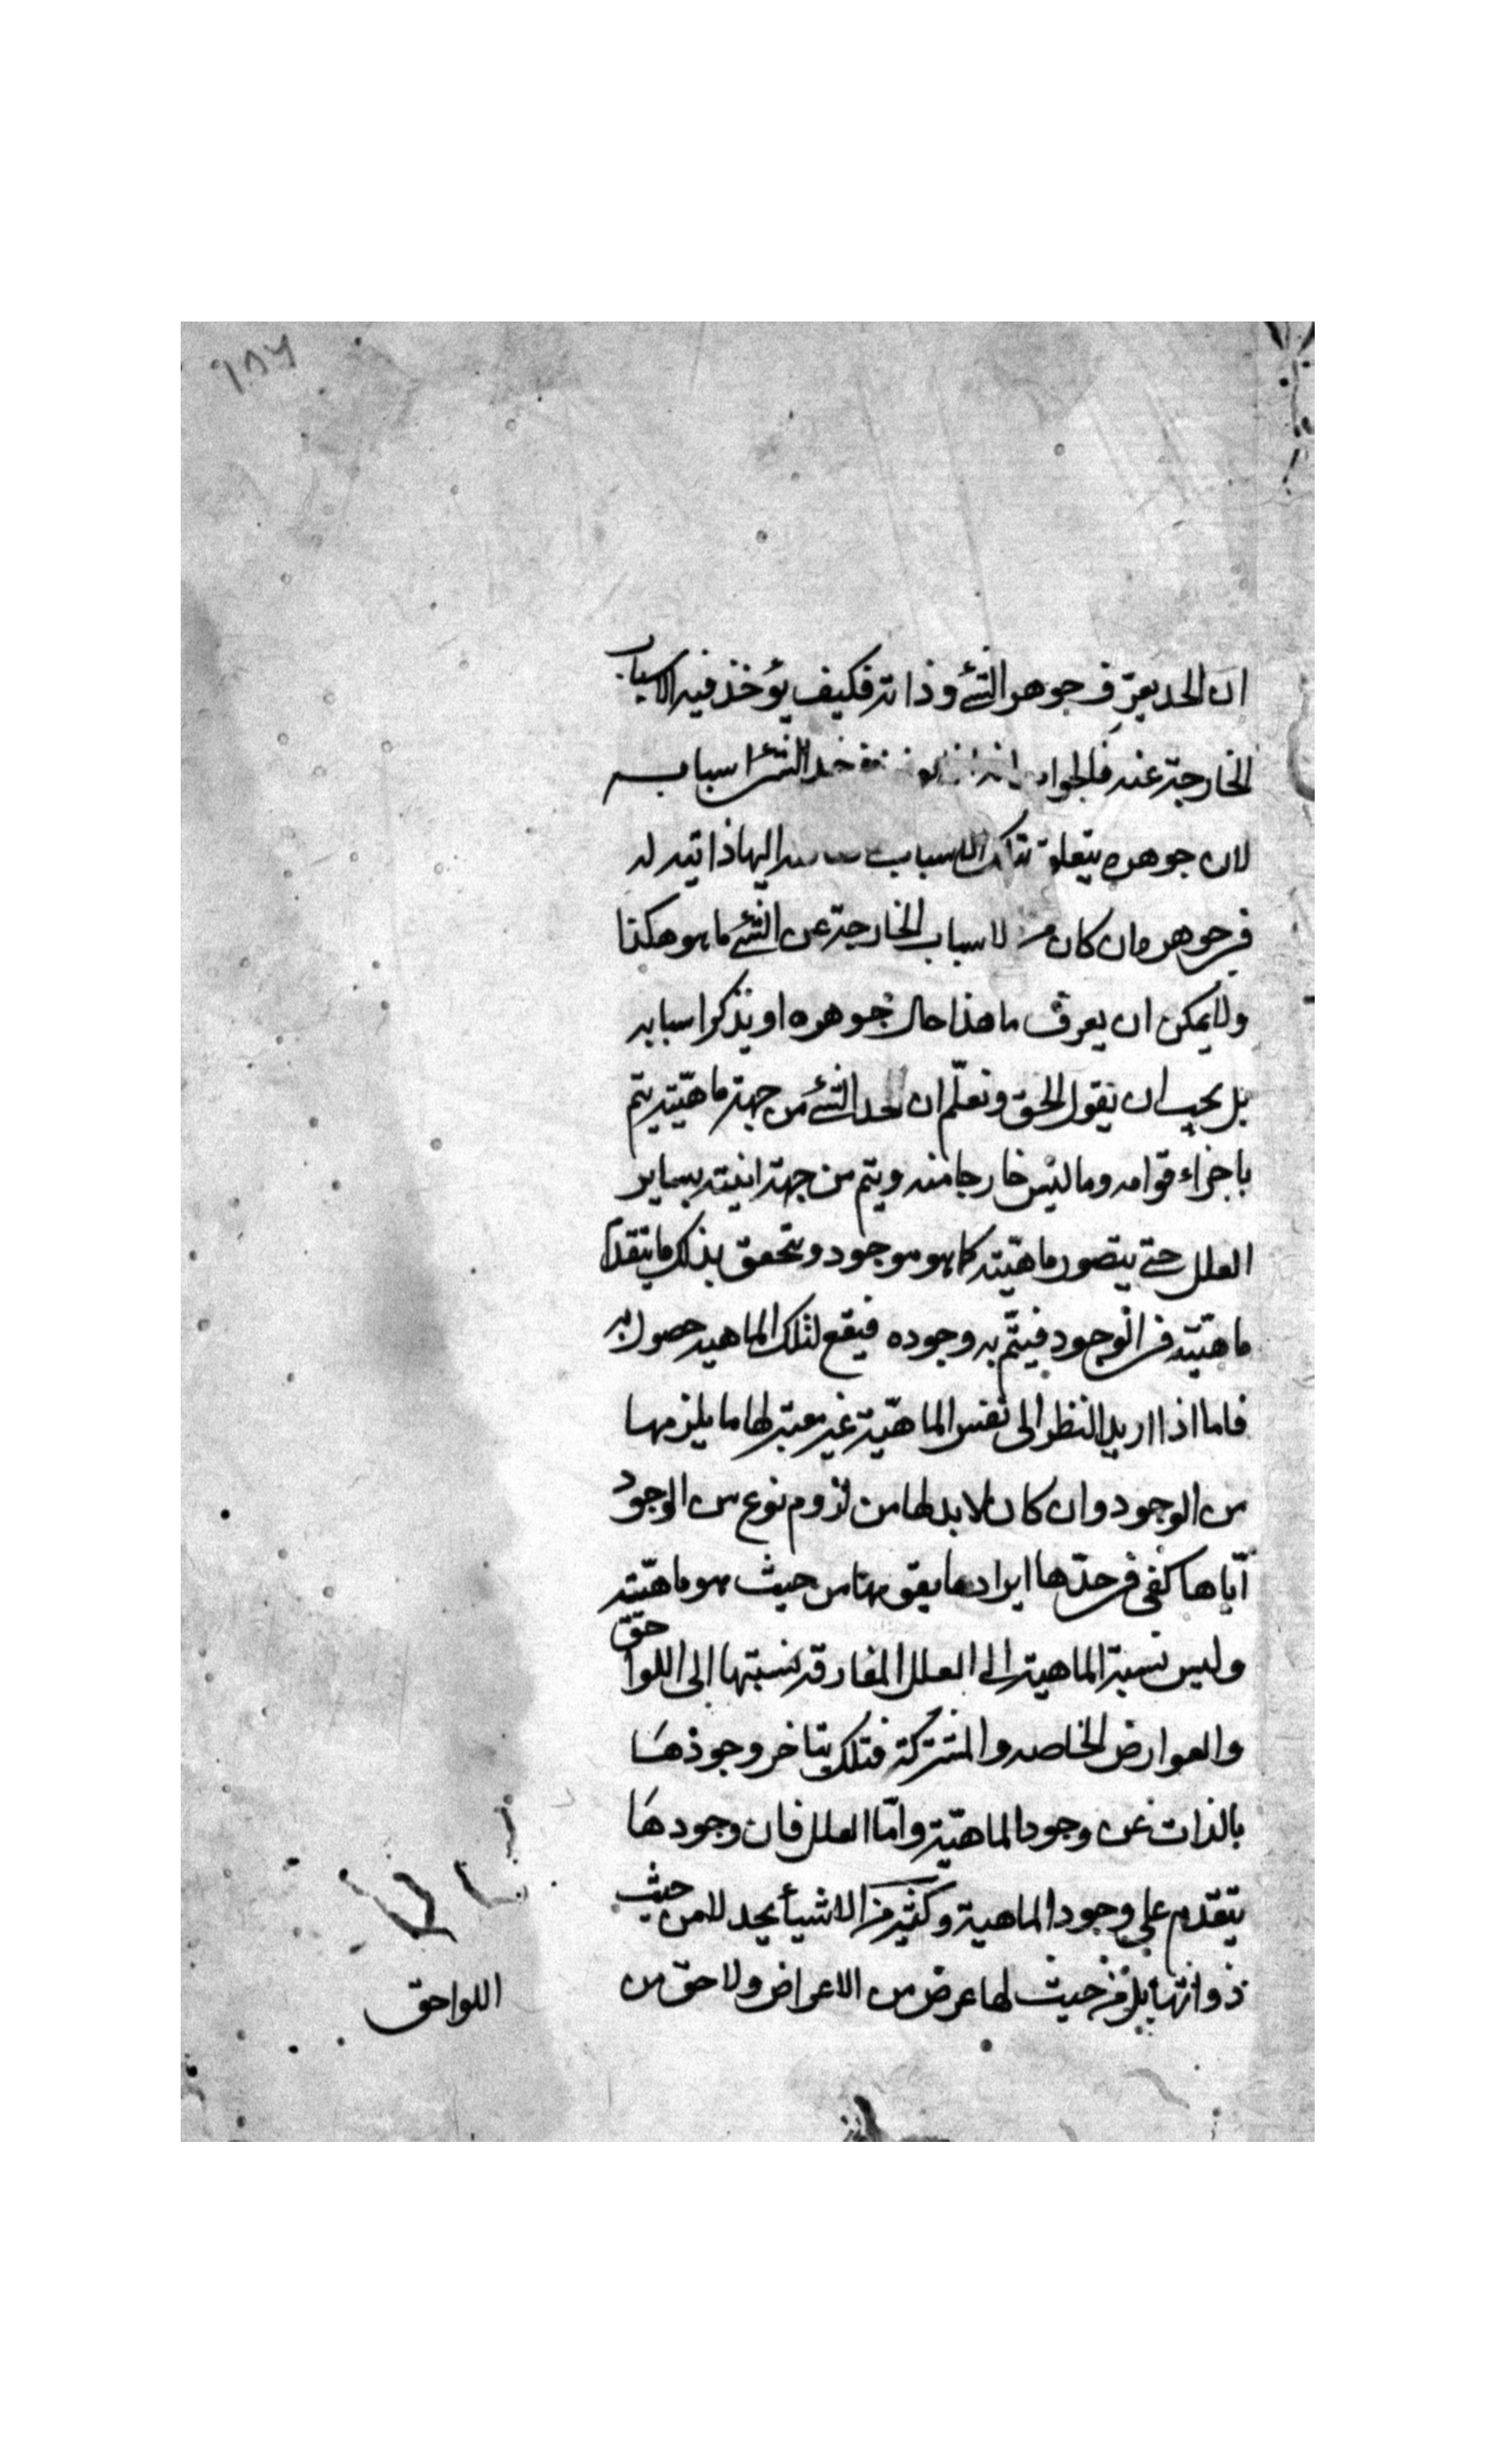 ان الحد يعرف جوهر الشئ وذاته فكيف يؤخذ فيه الاسباب
الخارجة عنه فالجواب انه الشئ اسبابه
لان جوهره يتعلق بتلك الاسباب اليها ذاتيه له
فى جوهره وان كان من الاسباب الخارجة عن الشئ ما هو هكذا
ولا يمكن ان يعرف ما هذا حال جوهره او يذكر اسبابه
بل يجب ان نقول الحق ونعلّم ان لحد الشئ من جهة ماهيّته يتم
باجزاء قوامه وما ليس خارجا منه ويتم من جهة انيته بساير
العلل حتى يتصور ماهيّته كما هو موجود ويتحقق بذلك ما يتقدم
ماهيّته فى الوجود فيتمّ به وجوده فيقع لتلك الماهيه حصول به
فاما اذا اريد النظر الى نفس الماهيّة غير معتبر لها ما يلزمها
من الوجود وان كان لا بد لها من لزوم نوع من الوجود
ايّاها كفى فى حدّها ايراد ما يقومها من حيث هو ماهيّته
وليس نسبة الماهية الى العلل المفارقة نسبتها الى اللواحق
والعوارض الخاصه والمشتركة فتلك يتاخر وجودها
بالذات عن وجود الماهيّة وامّا العلل فان وجودها
يتقدم على وجود الماهية وكثير من الاشيأ يحد لا من حيث
ذواتها بل من حيث لها عرض من الاعراض ولاحق من
اللواحق